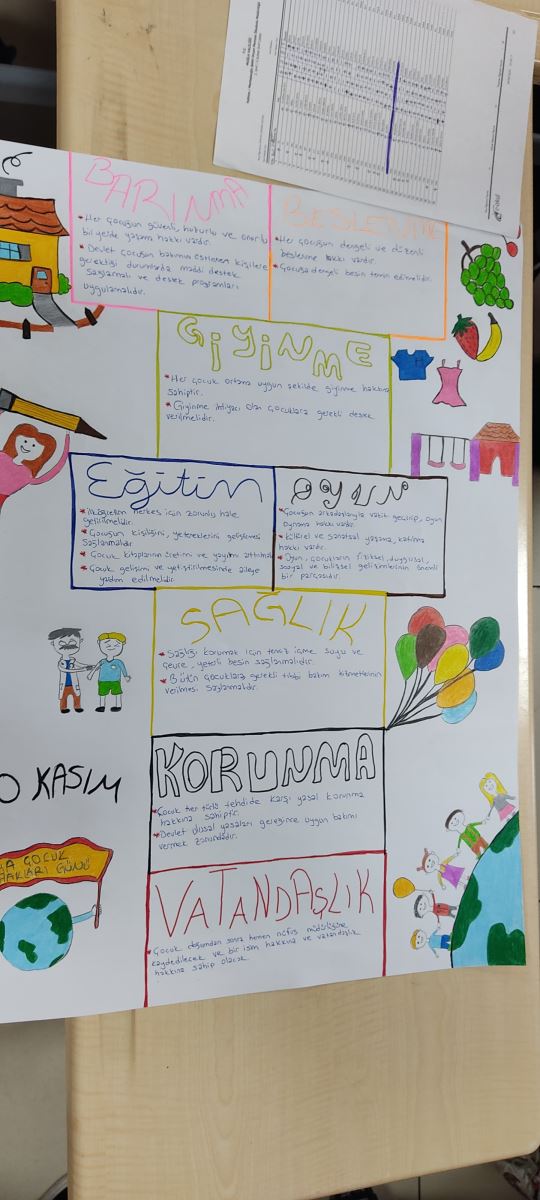 BARINMA
* Her çocuğun güvenli, huzurlu ve onurlu
bir yerde yaşama hakkı vardır.
* Devlet çocuğun bakımını üstlenen kişilere
gerektiği durumlarda maddi destek
sağlamalı ve destek programları
uygulamalıdır.
BESLENME
* Her çocuğun dengeli ve düzenli
beslenme hakkı vardır.
* Çocuğa dengeli besin temin edilmelidir.
GİYİNME
* Her çocuk ortama uygun şekilde giyinme hakkına
sahiptir.
* Giyinme ihtiyacı olan çocuklara gerekli destek
verilmelidir.
Eğitim
* İlköğretim herkes için zorunlu hale
getirilmelidir.
* Çocuğun kişiliğini, yeteneklerini gelişmesi
sağlanmalıdır
* Çocuk kitaplarının üretimi ve yayımı arttırılmalı
* Çocuk gelişimi ve yetiştirilmesinde aileye
yardım edilmelidir.
OYUN
* Çocuğun arkadaşlarıyla vakit geçirip, oyun
oynama hakkı vardır.
* Kültürel ve sanatsal yaşama, katılma
hakkı vardır.
* Oyun, çocukların fiziksel, duygusal,
sosyal ve bilişsel gelişimlerinin önemli
bir parçasıdır.
SAĞLIK
* Sağlığı korumak için temiz içme suyu ve
çevre, yeterli besin sağlanmalıdır.
* Bütün çocuklara gerekli tıbbi bakım hizmetlerinin
verilmesi sağlanmalıdır.
0 KASIM
KORUNMA
* Çocuk her türlü tehdide karşı yasal korunma
hakkına sahiptir.
* Devlet ulusal yasaları gereğince uygun bakımı
vermek zorundadır.
A ÇOCUK
HAKLARI GÜNÜ
VATANDAŞLIK
* Çocuk doğumdan sonra hemen nüfus müdürlüğüne
kaydedilecek ve bir isim hakkına ve vatandaşlık
hakkına sahip olacak.